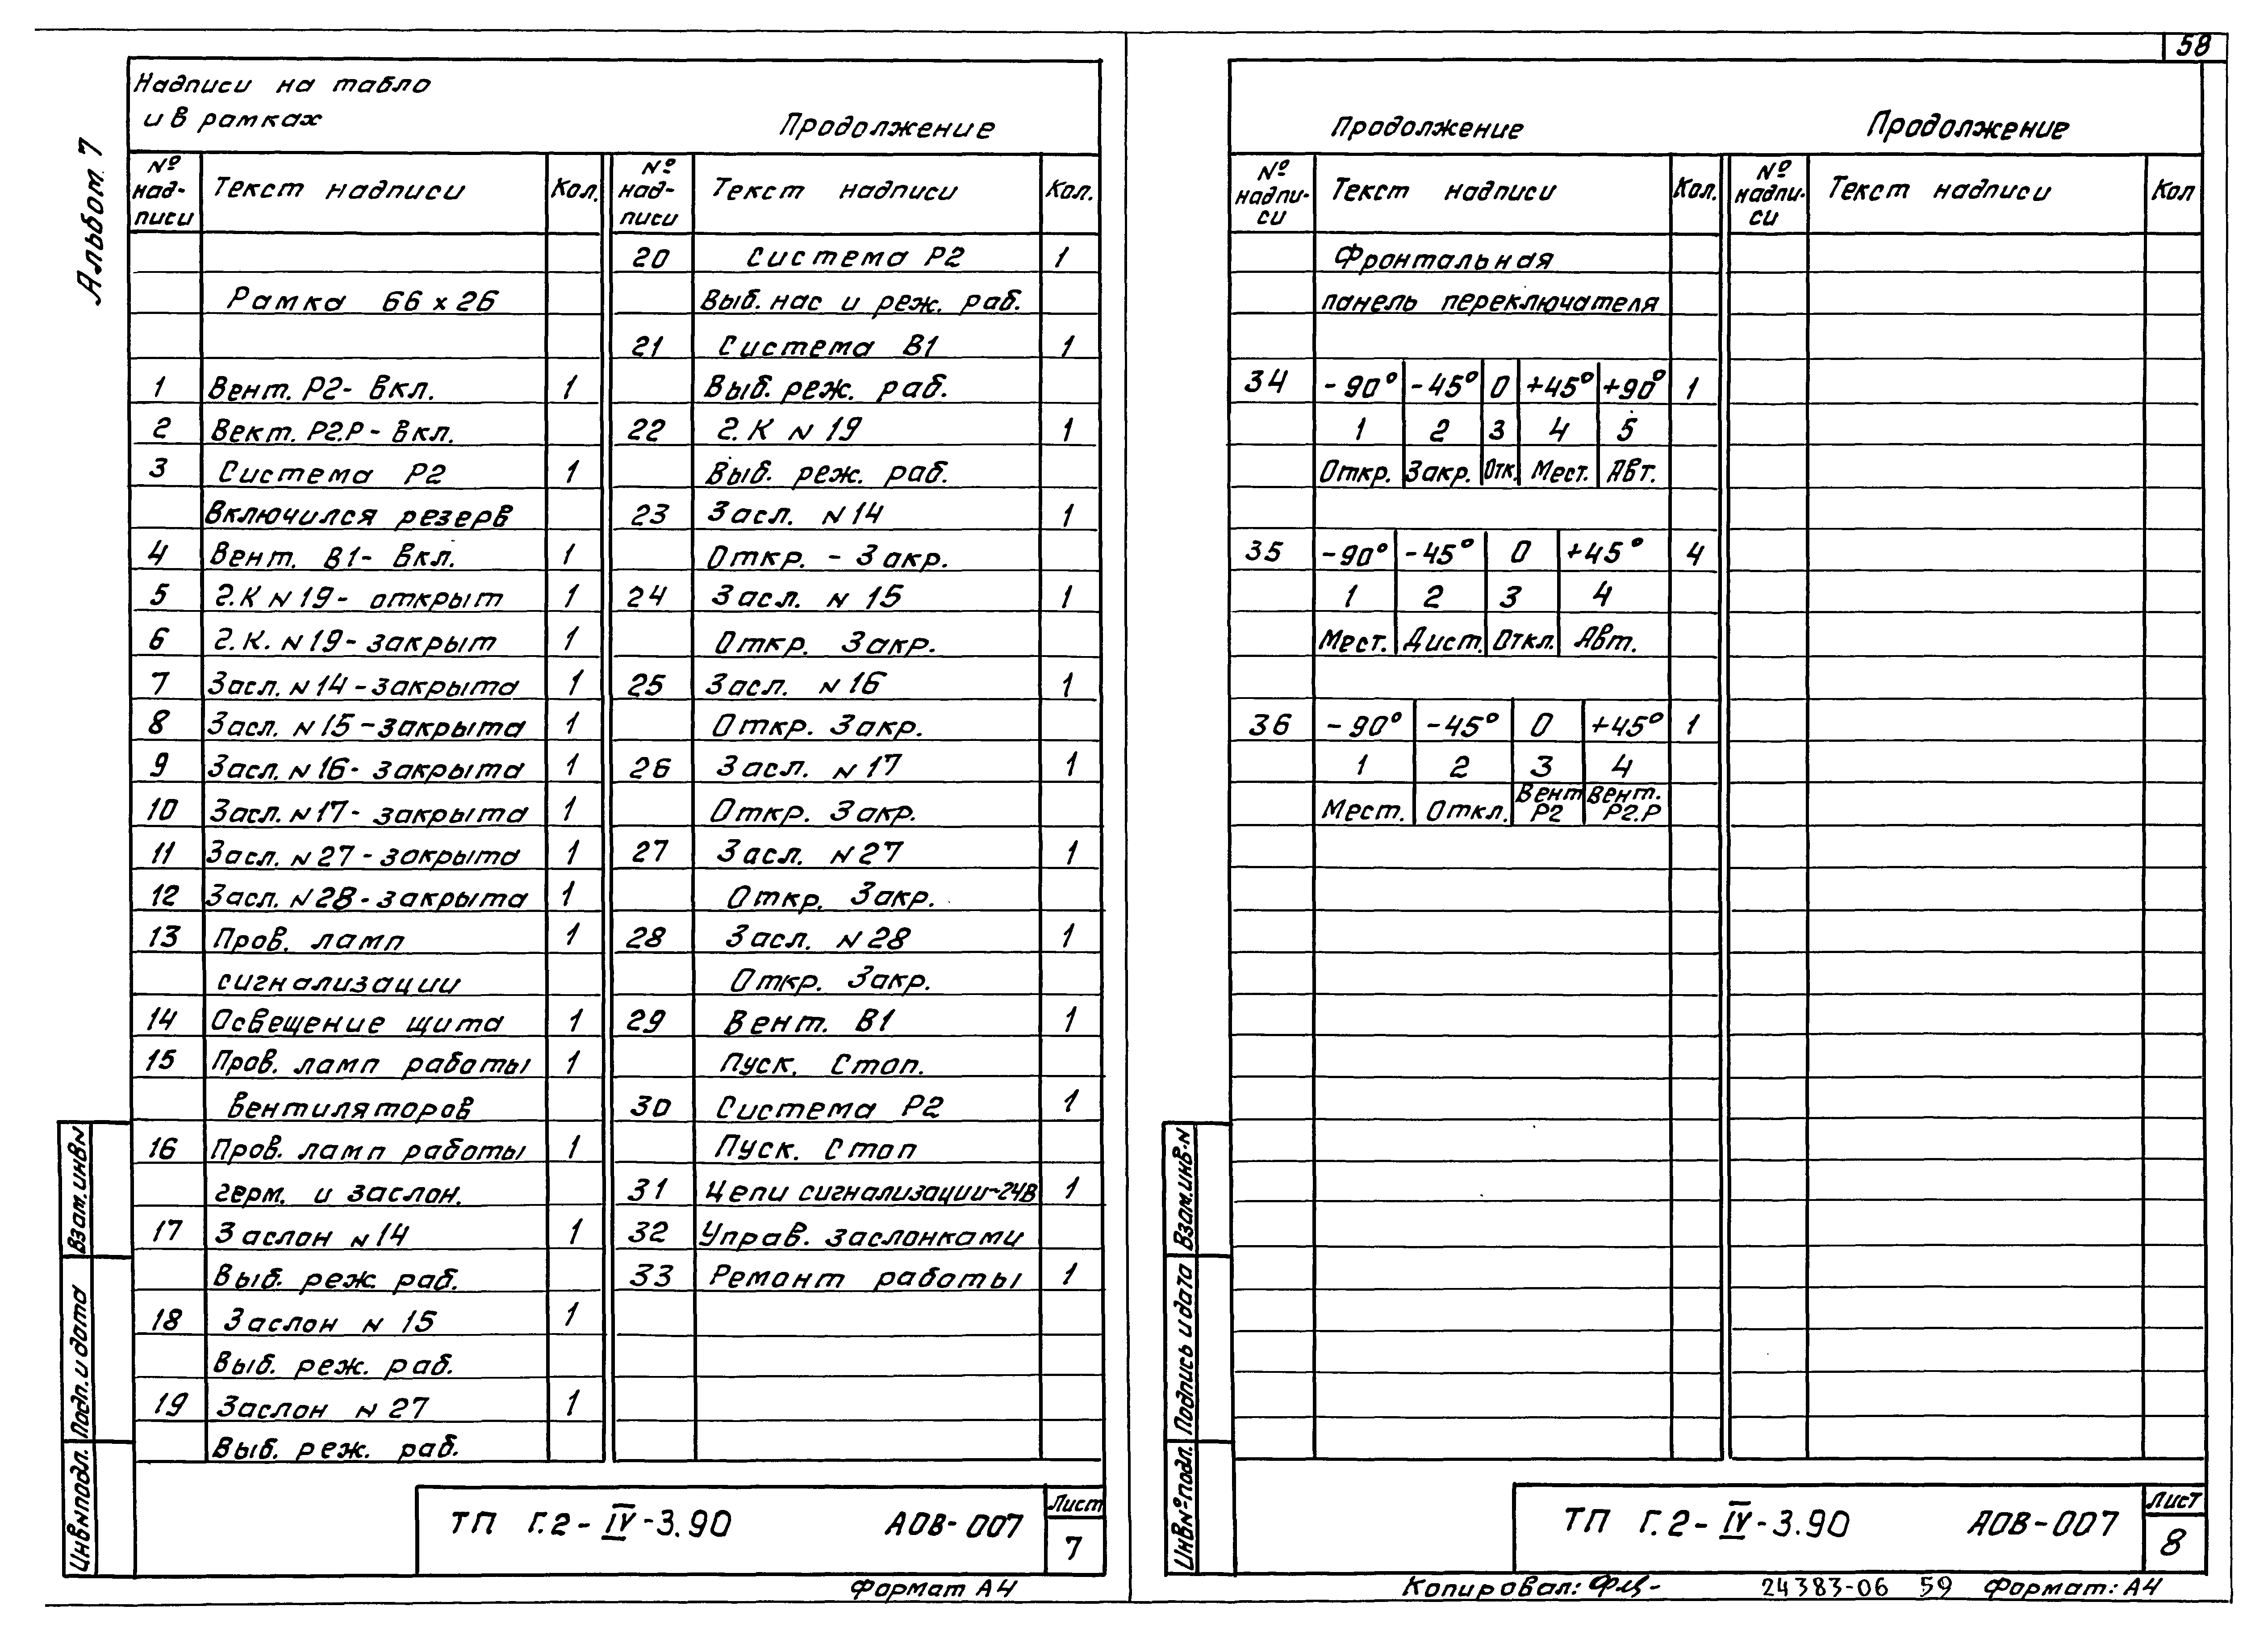 58
Альбом 7
Надписи на табло
и в рамках
Продолжение
№ над-писи | Текст надписи | Кол. | № над-писи | Текст надписи | Кол.
20 Система Р2 1
Рамка 66 х 26
Выб. нас и реж. раб.
21 Система В1 1
1 Вент. Р2- вкл. 1
Выб. реж. раб.
2 Вект. Р2.Р- вкл.
22 г.К N 19 1
3 Система Р2 1
Выб. реж. раб.
включился резерв
23 Засл. N 14 1
4 Вент. В1- вкл. 1
Откр. - Закр.
5 г.К N 19- открыт 1
24 Засл. N 15 1
6 г.К. N 19- закрыт 1
Откр. Закр.
7 Засл. N 14 - закрыта 1
25 Засл. N 16 1
8 Засл. N 15 - закрыта 1
Откр. Закр.
9 Засл. N 16- закрыта 1
26 Засл. N 17 1
10 Засл. N 17- закрыта 1
Откр. Закр.
11 Засл. N 27 - закрыта 1
27 Засл. N 27 1
12 Засл. N 28 - закрыта 1
Откр. Закр.
13 Пров. ламп 1
28 Засл. N 28 1
сигнализации
Откр. Закр.
14 Освещение щита 1
29 Вент. В1 1
15 Пров. ламп работы 1
Пуск. Стоп.
вентиляторов
30 Система Р2 1
16 Пров. ламп работы 1
Пуск. Стоп
герм. и заслон.
31 Цепи сигнализации~24В 1
17 Заслон N 14 1
32 Управ. заслонками
Выб. реж. раб.
33 Ремонт работы 1
18 Заслон N 15 1
Выб. реж. раб.
19 Заслон N 27 1
Выб. реж. раб.
Взам. инв N
Подп. и дата
Инв N подл.
ТП Г.2-IV-3.90 АОВ-007
Лист
7
Формат А4
Продолжение
Продолжение
№ надпи-си | Текст надписи | Кол. | № надпи-си | Текст надписи | Кол
Фронтальная
панель переключателя
34 -90° -45° 0 +45° +90° 1
1 2 3 4 5
Откр. Закр. Отк. Мест. Авт.
35 -90° -45° 0 +45° 4
1 2 3 4
Мест. Дист. Откл. Авт.
36 -90° -45° 0 +45° 1
1 2 3 4
Мест. Откл. Вент Р2 Вент. Р2.Р
Взам. инв. N
Подпись и дата
Инв № подл.
ТП Г.2-IV-3.90 АОВ-007
Лист
8
Копировал:
24383-06 59 Формат: А4